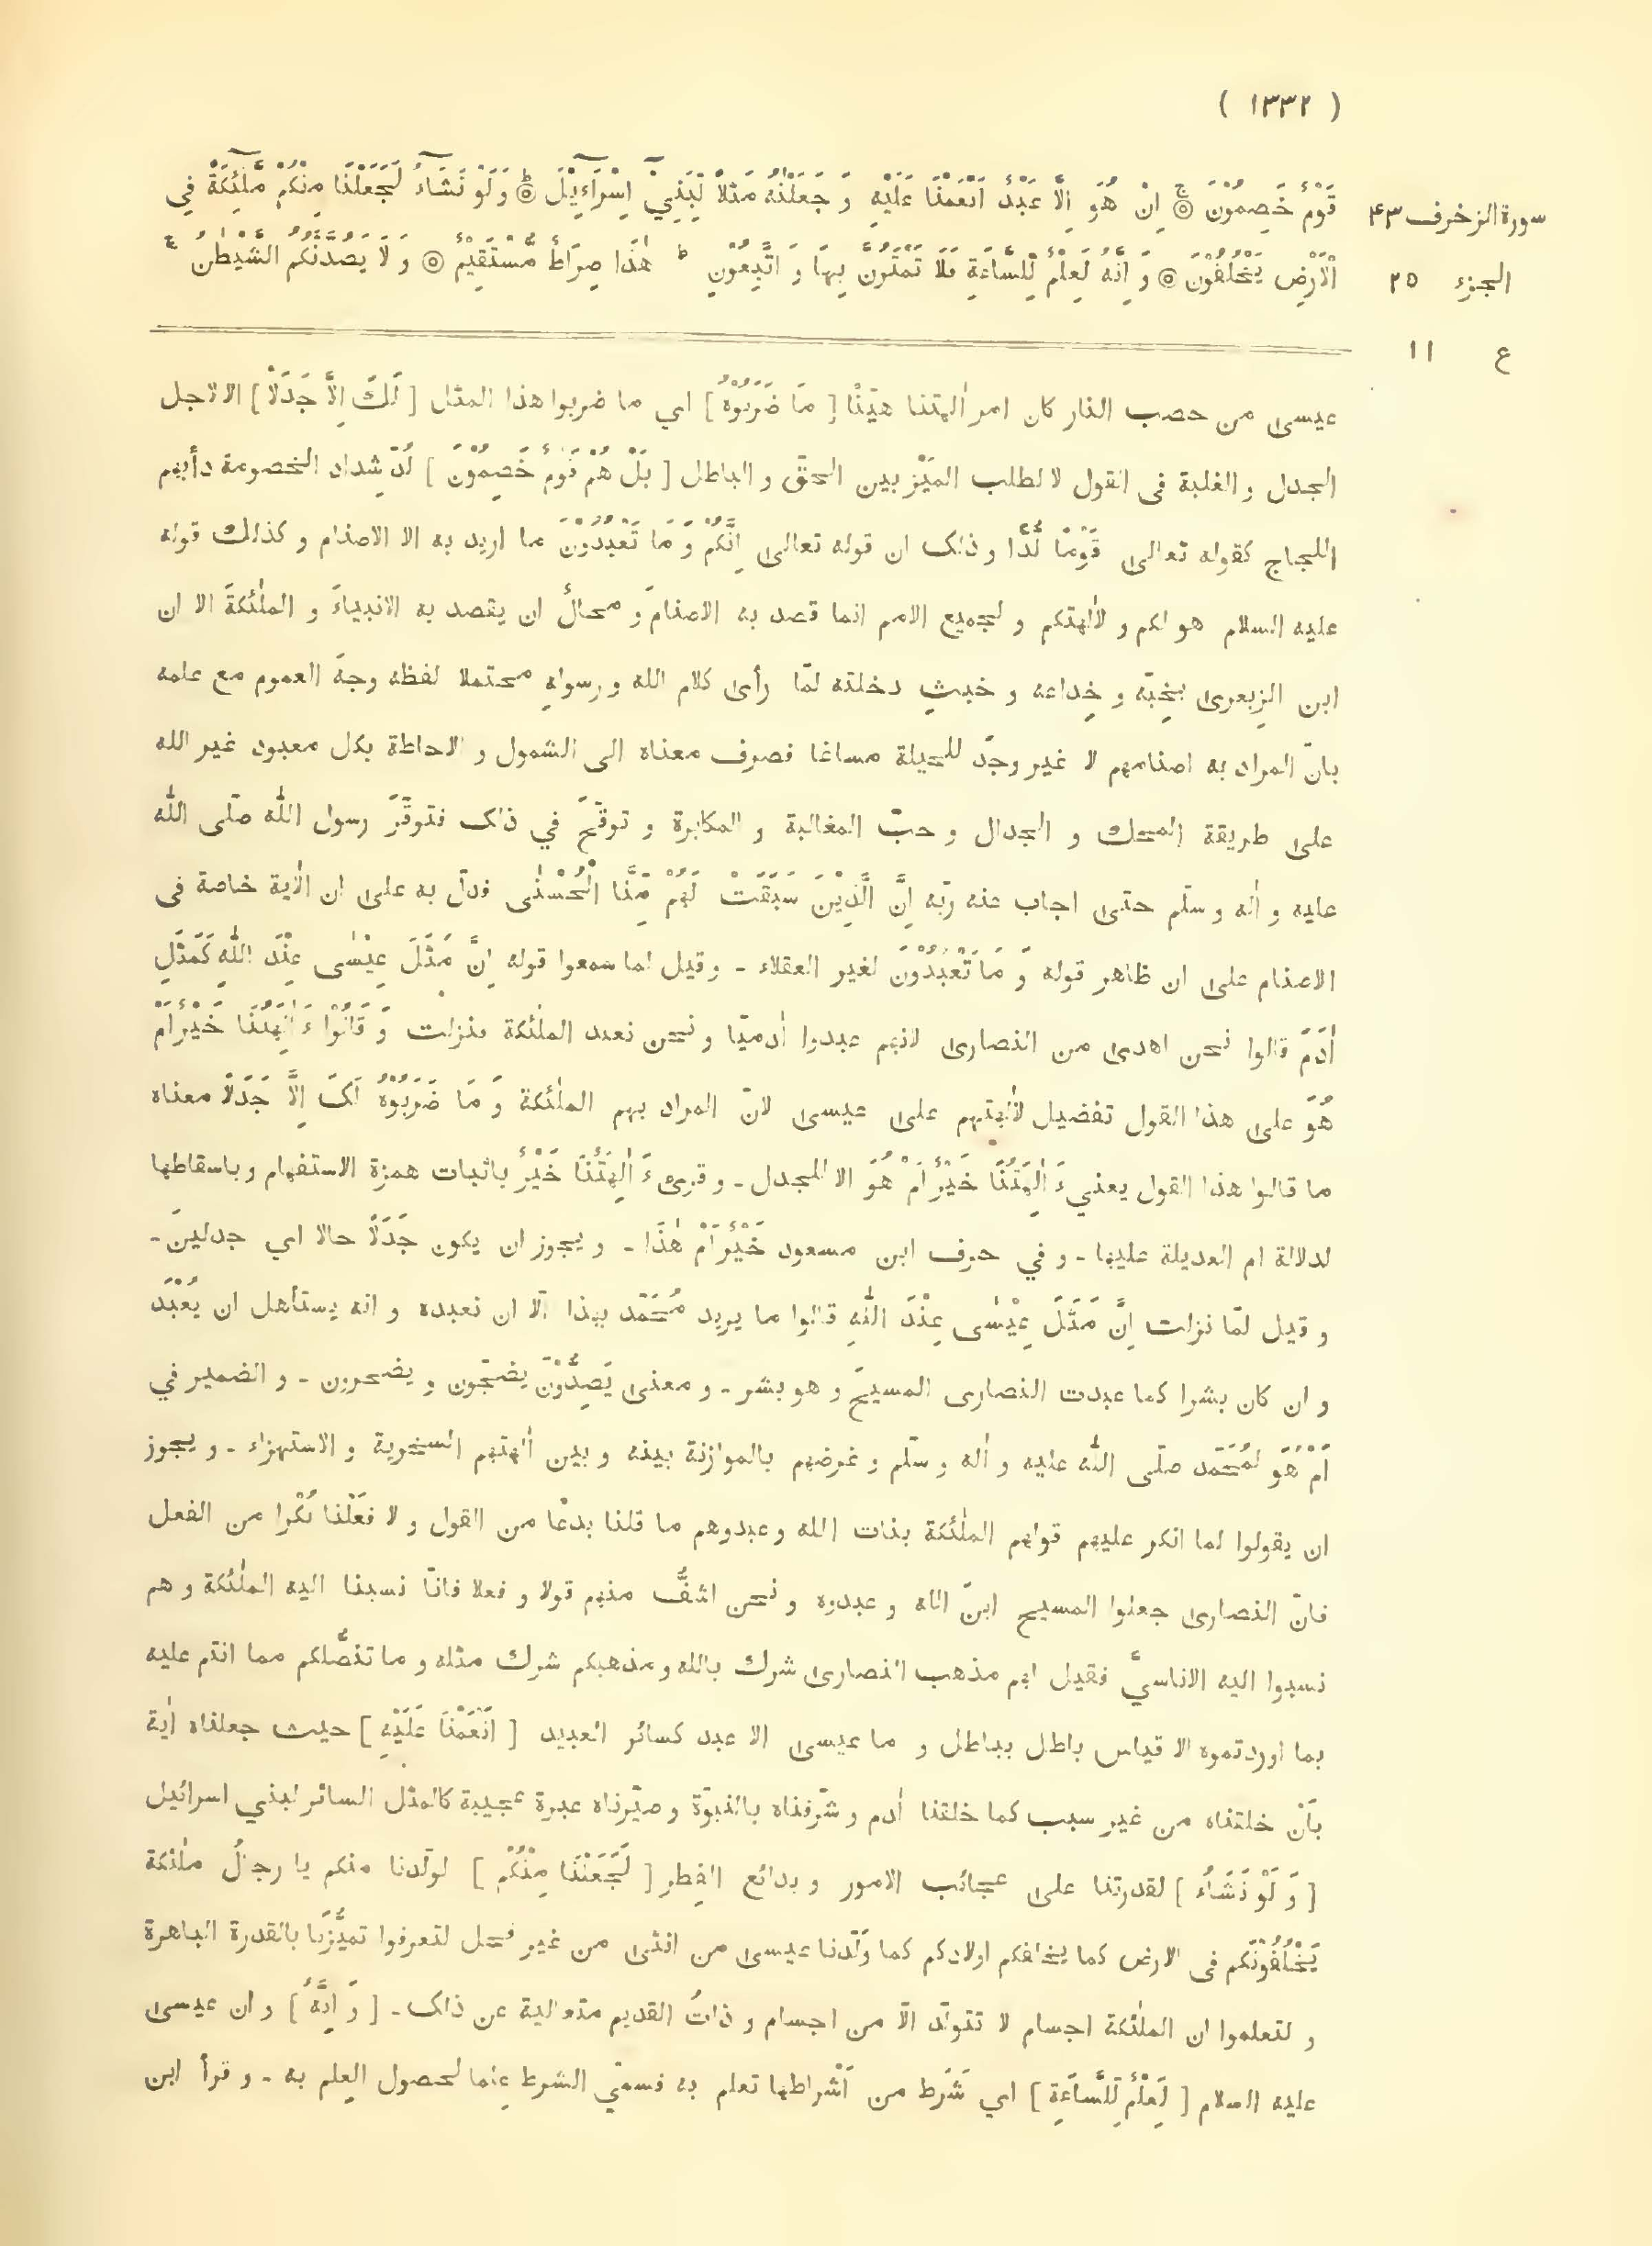 ( ١٣٣٢ )
سورة الزخرف ٤٣
الجزء ٢٥
ع ١١
قَوْمٌ خَصِمُوْنَ ۞ اِنْ هُوَ اِلَّا عَبْدٌ اَنْعَمْنَا عَلَيْهِ وَ جَعَلْنٰهُ مَثَلًا لِّبَنِيْٓ اِسْرَآءِيْلَ ۞ وَ لَوْ نَشَآءُ لَجَعَلْنَا مِنْكُمْ مَّلٰٓئِكَةً فِي
الْاَرْضِ يَخْلُفُوْنَ ۞ وَ اِنَّهٗ لَعِلْمٌ لِّلسَّاعَةِ فَلَا تَمْتَرُنَّ بِهَا وَ اتَّبِعُوْنِ ط هٰذَا صِرَاطٌ مُّسْتَقِيْمٌ ۞ وَ لَا يَصُدَّنَّكُمُ الشَّيْطٰنُ ج
عيسى من حصب النار كان امر اٰلهتنا هيّنًا [ مَا ضَرَبُوْهُ ] اي ما ضربوا هذا المثل [ لَكَ اِلَّا جَدَلًا ] الا لاجل
الجدل و الغلبة فى القول لا لطلب المَيْز بين الحقّ و الباطل [ بَلْ هُمْ قَوْمٌ خَصِمُوْنَ ] لُدّ شِداد الخصومة دأبهم
اللجاج كقوله تعالى قَوْمًا لُّدًّا و ذلك ان قوله تعالى اِنَّكُمْ وَ مَا تَعْبُدُوْنَ ما اريد به الا الاصنام و كذلك قوله
عليه السلام هو لكم و لاٰلهتكم و لجميع الامم انما قصد به الاصنامَ و محالٌ ان يقصد به الانبياءَ و الملٰئكةَ الا ان
ابن الزبعرى بخِبّه و خِداعه و خبثِ دخلته لمّا رأى كلام الله و رسولهِ محتملا لفظه وجهَ العموم مع علمه
بانّ المراد به اصنامهم لا غير وجدّ للحيلة مساغا فصرف معناه الى الشمول و الاحاطة بكل معبود غير الله
على طريقة المحك و الجدال و حبّ المغالبة و المكابرة و توقّح في ذلك فتوقّر رسول اللّٰه صلّى اللّٰه
عليه و اٰله و سلّم حتى اجاب عنه ربّه اِنَّ الَّذِيْنَ سَبَقَتْ لَهُمْ مِّنَّا الْحُسْنٰى فدلّ به على ان الاٰية خاصة فى
الاصنام على ان ظاهر قوله وَ مَا تَعْبُدُوْنَ لغير العقلاء - و قيل لما سمعوا قوله اِنَّ مَثَلَ عِيْسٰى عِنْدَ اللّٰهِ كَمَثَلِ
اٰدَمَ قالوا نحن اهدى من النصارى لانهم عبدوا اٰدميّا و نحن نعبد الملٰئكة فنزلت وَ قَالُوْا ءَاٰلِهَتُنَا خَيْرٌ اَمْ
هُوَ على هذا القول تفضيل لاٰلهتهم على عيسى لانّ المراد بهم الملٰئكة وَ مَا ضَرَبُوْهُ لَكَ اِلَّا جَدَلًا معناه
ما قالوا هذا القول يعني ءَاٰلِهَتُنَا خَيْرٌ اَمْ هُوَ الا للجدل - و قرئ ءَاٰلِهَتُنَا خَيْرٌ باثبات همزة الاستفهام و باسقاطها
لدلالة ام العديلة عليها - و في حرف ابن مسعود خَيْرٌ اَمْ هٰذَا - و يجوز ان يكون جَدَلًا حالا اي جدلين -
و قيل لمّا نزلت اِنَّ مَثَلَ عِيْسٰى عِنْدَ اللّٰهِ قالوا ما يريد مُحَمّد بهذا الّا ان نعبده و انه يستأهل ان يُعْبَد
و ان كان بشرا كما عبدت النصارى المسيحَ و هو بشر - و معنى يَصِدُّوْنَ يضجّون و يضجرون - و الضمير في
اَمْ هُوَ لمُحَمّد صلّى اللّٰه عليه و اٰله و سلّم و غرضهم بالموازنة بينه و بين اٰلهتهم السخرية و الاستهزاء - و يجوز
ان يقولوا لما انكر عليهم قولهم الملٰئكة بنات الله و عبدوهم ما قلنا بدعًا من القول و لا فعَلْنا نُكْرا من الفعل
فانّ النصارى جعلوا المسيح ابنَ الله و عبدوه و نحن اشفُّ منهم قولا و فعلا فانّا نسبنا اليه الملٰئكة و هم
نسبوا اليه الاناسيّ فقيل لهم مذهب النصارى شرك بالله و مذهبكم شرك مثله و ما تنصُّلكم مما انتم عليه
بما اوردتموه الا قياس باطل بباطل و ما عيسى الا عبد كسائر العبيد [ اَنْعَمْنَا عَلَيْهِ ] حيث جعلناه اٰية
بأَنْ خلقناه من غير سبب كما خلقنا اٰدم و شرّفناه بالنبوّة و صيّرناه عبرة عجيبة كالمثل السائر لبني اسرائيل
[ وَ لَوْ نَشَاءُ ] لقدرتنا على عجائب الامور و بدائع الفِطر [ لَجَعَلْنَا مِنْكُمْ ] لولّدنا منكم يا رجالُ ملٰئكة
يَخْلُفُوْنَكم فى الارض كما يخلفكم اولادكم كما وَلّدنا عيسى من انثى من غير فحل لتعرفوا تميُّزَنا بالقدرة الباهرة
و لتعلموا ان الملٰئكة اجسام لا تتولّد الّا من اجسام و ذاتُ القديم متعالية عن ذلك - [ وَ اِنَّهٗ ] و ان عيسى
عليه السلام [ لَعِلْمٌ لِّلسَّاعَةِ ] اي شَرَط من اَشْراطها تعلم به فسمّي الشرط عِلما لحصول العِلم به - و قرأ ابن